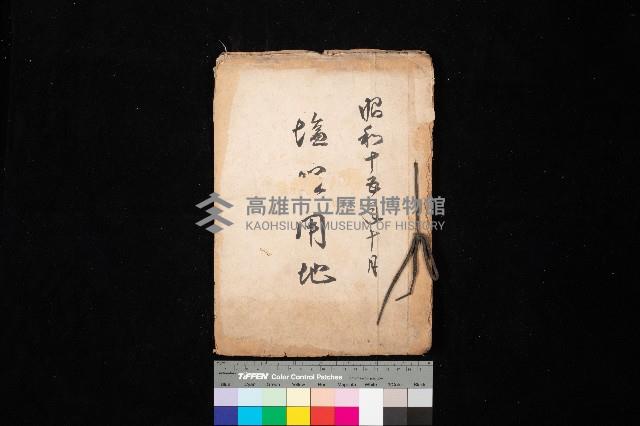 昭和十五年十月
塩田用地
高雄市立歷史博物館
KAOHSIUNG MUSEUM OF HISTORY
TIFFEN Color Control Patches
Blue Cyan Green Yellow Red Magenta White 3/Color Black